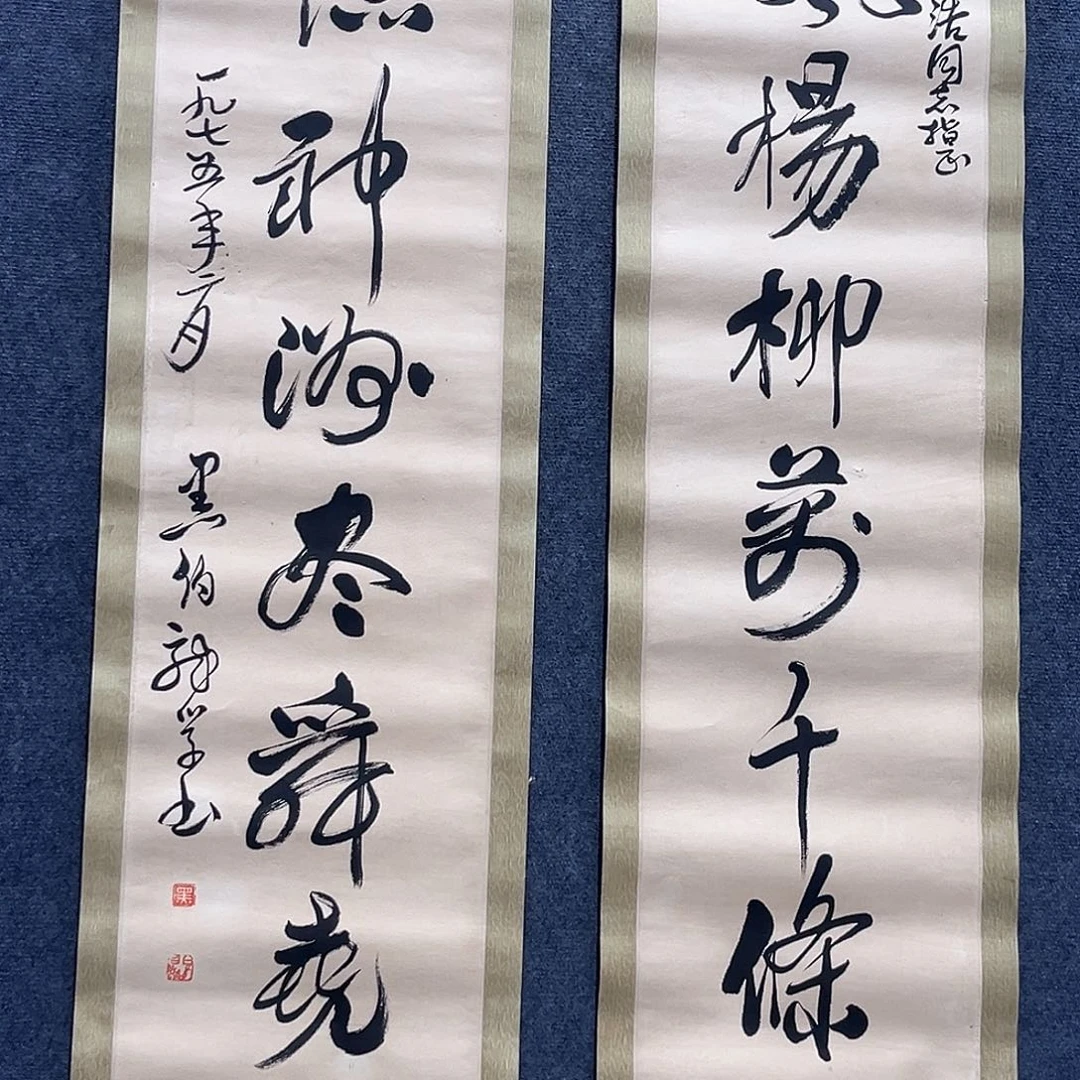 浩同志指正
楊柳萬千條
神洲尽舜堯
一九七五年二月 黑伯龍学书
黑